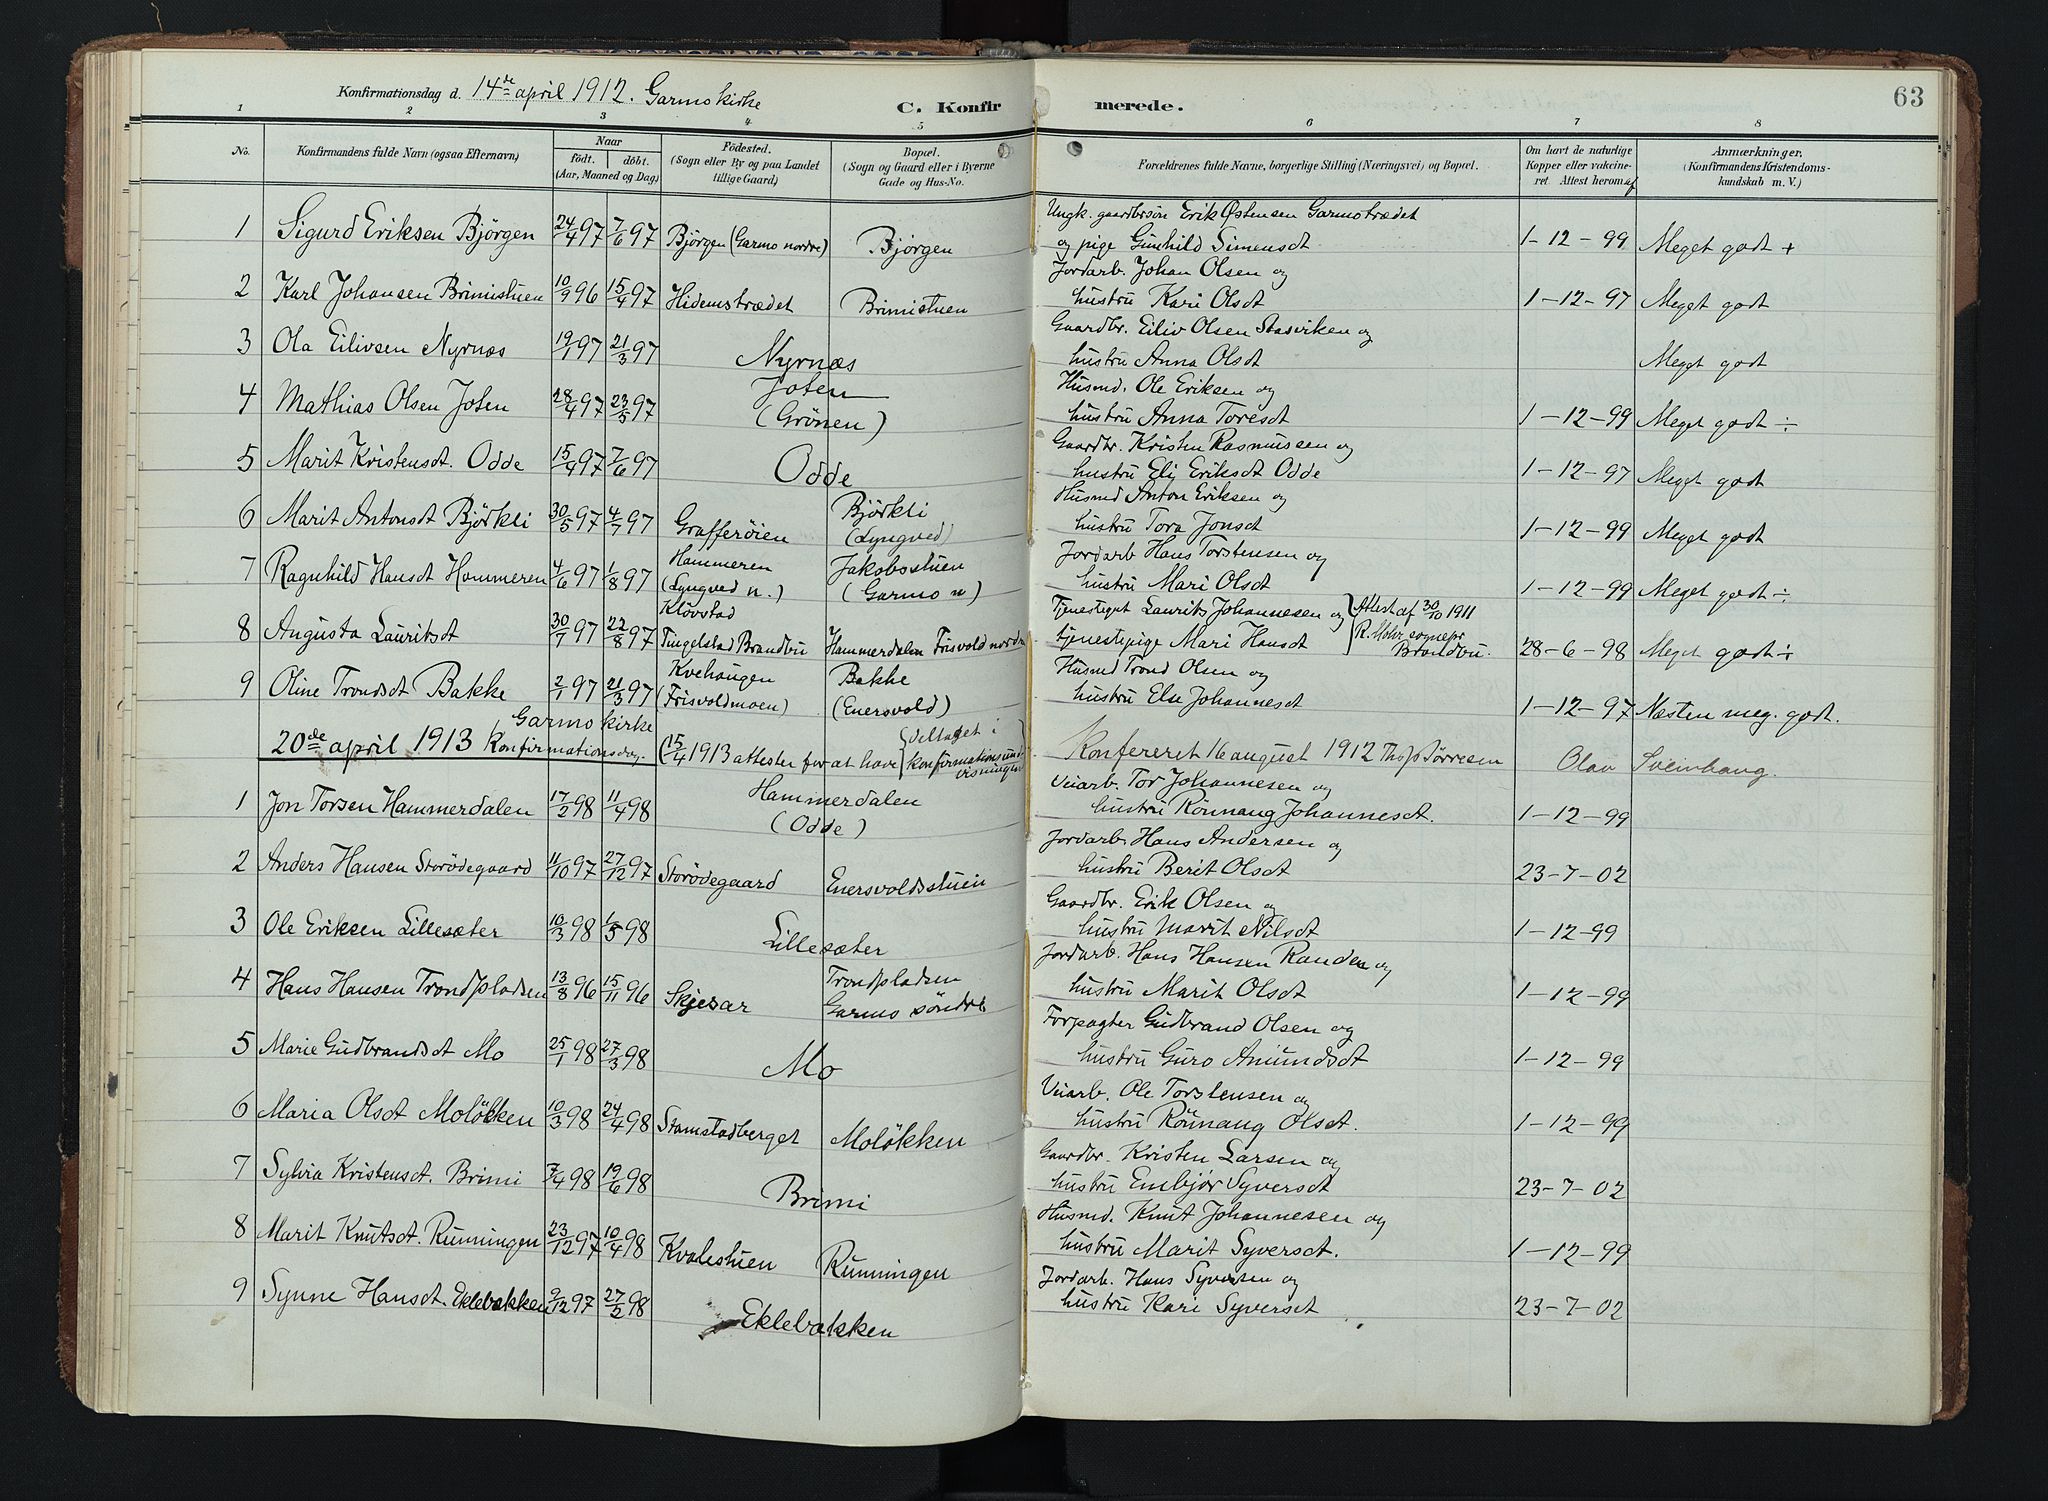 Konfirmationsdag d. 14de april 1912. Garmo kirke
C. Konfirmerede.
63
1 2 3 4 5 6 7 8
No.
Konfirmandens fulde Navn (ogsaa Efternavn)
Naar
födt. döbt.
(Aar, Maaned og Dag)
Födested.
(Sogn eller By og paa Landet
tillige Gaard)
Bopæl.
(Sogn og Gaard eller i Byerne
Gade og Hus-No.
Forældrenes fulde Navne, borgerlige Stilling (Næringsvei) og Bopæl.
Om havt de naturlige
Kopper eller vakcine-
ret. Attest herom af
Anmærkninger.
(Konfirmandens Kristendoms-
kundskab m. V.)
1 Sigurd Eriksen Björgen 24/4 97 7/6 97 Björgen (Garmo nordre) Björgen
Ungk. gaardbrsön Erik Østensen Garmotrædet
og pige Gunhild Simensdt 1-12-99 Meget godt +
2 Karl Johansen Brimistuen 10/9 96 15/4 97 Hidemstrædet Brimistuen
Jordarb. Johan Olsen og
hustru Kari Olsdt 1-12-97 Meget godt
3 Ola Eilivsen Nyrnæs 19/1 97 21/3 97 Nyrnæs
Gaardbr. Eiliv Olsen Stasviken og
hustru Anna Olsdt Meget godt
4 Mathias Olsen Joten 28/4 97 23/5 97 Joten
(Grönen)
Husmd. Ole Eriksen og
hustru Anna Toresdt 1-12-99 Meget godt ÷
5 Marit Kristensdt. Odde 15/4 97 7/6 97 Odde
Gaardbr. Kristen Rasmussen og
hustru Eli Eriksdt Odde 1-12-97 Meget godt
6 Marit Antonsdt Björkli 30/5 97 4/7 97 Grafferöien Björkli
(Lyngved)
Husmd Anton Eriksen og
hustru Tora Jonsdt 1-12-99 Meget godt
7 Ragnhild Hansdt Hammeren 4/6 97 1/8 97 Hammeren
(Lyngved n.) Jakobsstuen
(Garmo n)
Jordarb Hans Torstensen og
hustru Mari Olsdt 1-12-99 Meget godt ÷
8 Augusta Lauritsdt 30/7 97 22/8 97 Klövstad
Tingelstad Brandbu Hammerdalen Frisvold nordre
Tjenestegut Laurits Johannesen og
tjenestepige Mari Hansdt
Attest af 30/10 1911
R. Mohr sognepr
Brandbu. 28-6-98 Meget godt ÷
9 Oline Trondsdt Bakke 2/1 97 21/3 97 Kvehaugen
(Frisvoldmoen) Bakke
(Enersvold)
Husmd Trond Olsen og
hustru Else Johannesdt 1-12-97 Næsten meg. godt.
Garmo kirke
20de april 1913 Konfirmationsdag. (15/4 1913 attester for at have deltaget i
konfirmationsund
visningen)
Konfereret 16 august 1912 Olav Sveinhaug.
1 Jon Torsen Hammerdalen 17/2 98 11/4 98 Hammerdalen
(Odde)
Veiarb. Tor Johannesen og
hustru Rönnaug Johannesdt. 1-12-99
2 Anders Hansen Storödegaard 11/10 97 27/12 97 Storödegaard Enersvoldsstuen
Jordarb. Hans Andersen og
hustru Berit Olsdt 23-7-02
3 Ole Eriksen Lillesæter 10/3 98 1/5 98 Lillesæter
Gaardbr. Erik Olsen og
hustru Marit Nilsdt 1-12-99
4 Hans Hansen Trondpladsen 13/8 96 15/11 96 Skjesar Trondpladsen
Garmo söndre
Jordarb. Hans Hansen Randen og
hustru Marit Olsdt 1-12-99
5 Marie Gudbrandsdt Mo 25/1 98 27/3 98 Mo
Forpagter Gudbrand Olsen og
hustru Guro Amundsdt 1-12-99
6 Maria Olsdt Molökken 10/3 98 24/4 98 Stamstadberget Molökken
Veiarb. Ole Torstensen og
hustru Rönnaug Olsdt. 1-12-99
7 Sylvia Kristensdt. Brimi 7/4 98 19/6 98 Brimi
Gaardbr. Kristen Larsen og
hustru Embjör Syversdt 23-7-02
8 Marit Knutsdt. Runningen 23/12 97 10/4 98 Kvalestuen Runningen
Husmd. Knut Johannesen og
hustru Marit Syversdt. 1-12-99
9 Synne Hansdt. Eklebakken 9/12 97 27/2 98 Eklebakken
Jordarb. Hans Syversen og
hustru Kari Syversdt 23-7-02